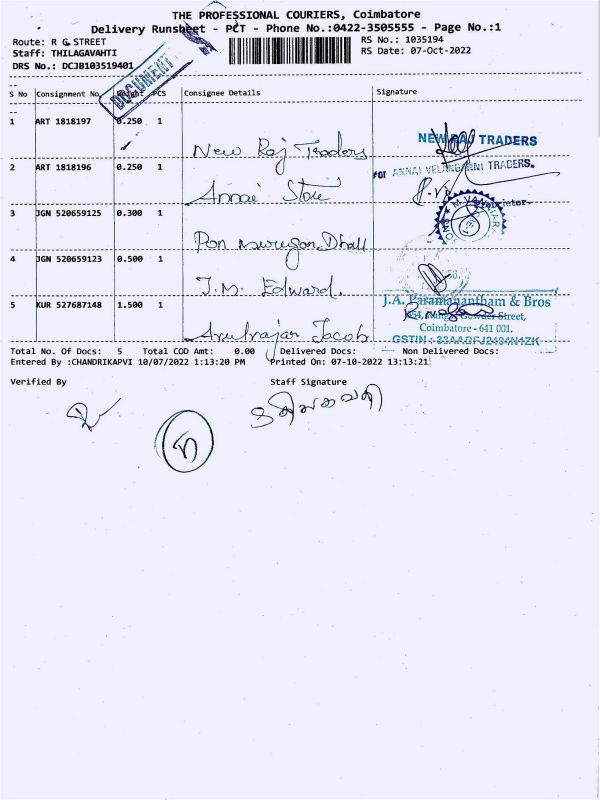 THE PROFESSIONAL COURIERS, Coimbatore
Delivery Runsheet - PCT - Phone No.:0422-3505555 - Page No.:1
Route: R G STREET
RS No.: 1035194
Staff: THILAGAVAHTI
RS Date: 07-Oct-2022
DRS No.: DCJB103519401
DOCUMENT
S No Consignment No Weight PCS Consignee Details Signature
1 ART 1818197 0.250 1 New Raj Traders NEW RAJ TRADERS
2 ART 1818196 0.250 1 Annai Store FOT ANNAI VELANGANNI TRADERS.
Proprietor
3 JGN 520659125 0.300 1 Pon murugan Dhall
4 JGN 520659123 0.500 1 J.M. Edward.
5 KUR 527687148 1.500 1 Arulrajar Jacob J.A. Paramanantham & Bros
Gowder Street,
Coimbatore - 641 001.
GSTIN :
Total No. Of Docs: 5 Total COD Amt: 0.00 Delivered Docs: Non Delivered Docs:
Entered By :CHANDRIKAPVI 10/07/2022 1:13:20 PM Printed On: 07-10-2022 13:13:21
Verified By Staff Signature